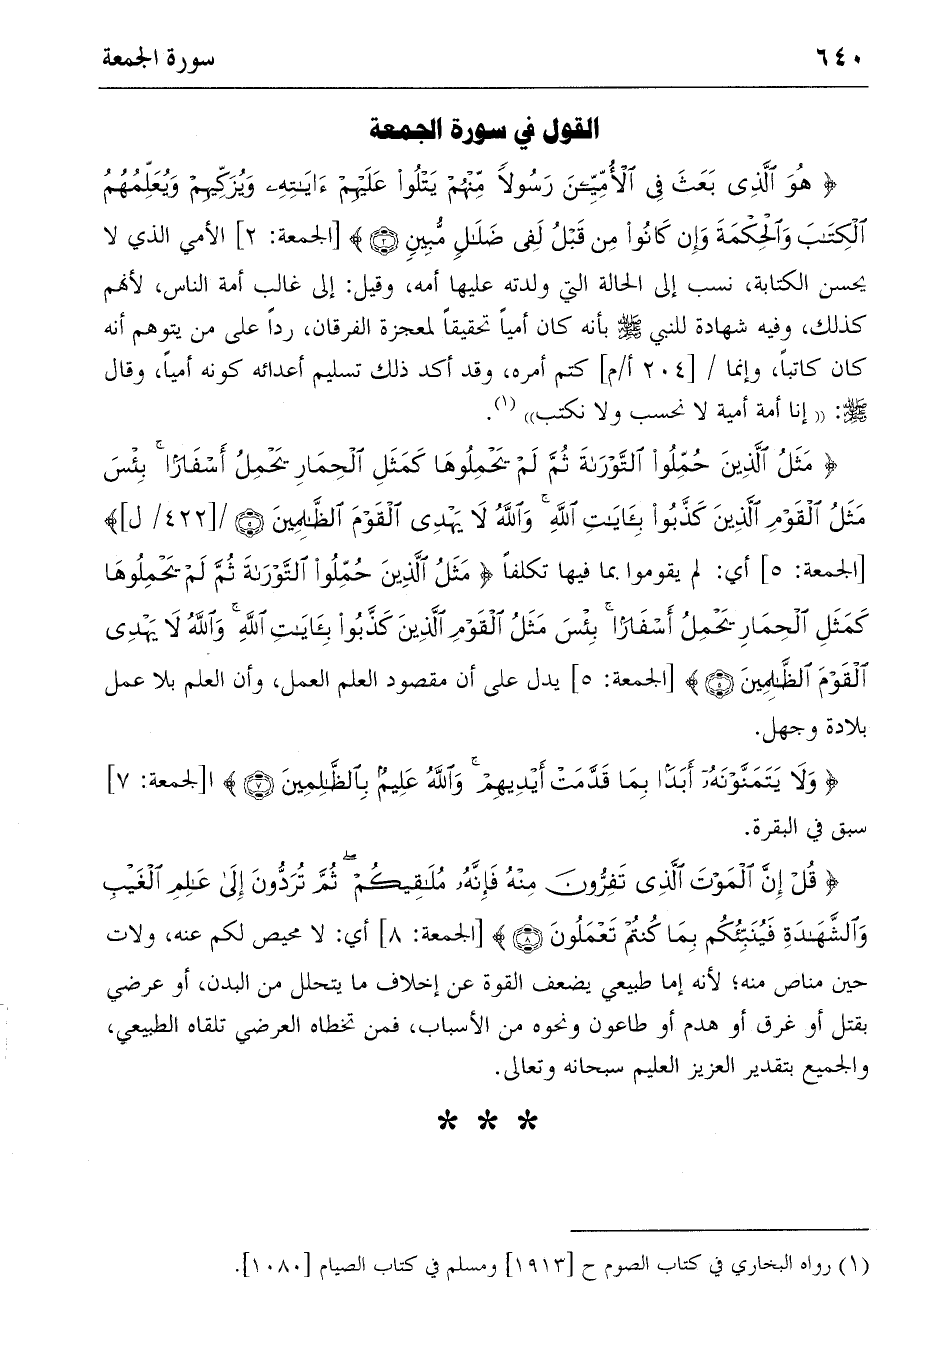 ٦٤٠ سورة الجمعة
القول في سورة الجمعة
﴿ هُوَ ٱلَّذِى بَعَثَ فِى ٱلْأُمِّيِّـۧنَ رَسُولاً مِّنْهُمْ يَتْلُوا۟ عَلَيْهِمْ ءَايَـٰتِهِۦ وَيُزَكِّيهِمْ وَيُعَلِّمُهُمُ
ٱلْكِتَـٰبَ وَٱلْحِكْمَةَ وَإِن كَانُوا۟ مِن قَبْلُ لَفِى ضَلَـٰلٍ مُّبِينٍ ۝٢ ﴾ [الجمعة: ٢] الأمي الذي لا
يحسن الكتابة، نسب إلى الحالة التي ولدته عليها أمه، وقيل: إلى غالب أمة الناس، لأنهم
كذلك، وفيه شهادة للنبي ﷺ بأنه كان أمياً تحقيقاً لمعجزة الفرقان، رداً على من يتوهم أنه
كان كاتباً، وإنما / [٢٠٤ أ/م] كتم أمره، وقد أكد ذلك تسليم أعدائه كونه أمياً، وقال
ﷺ: (( إنا أمة أمية لا نحسب ولا نكتب)) (١).
﴿ مَثَلُ ٱلَّذِينَ حُمِّلُوا۟ ٱلتَّوْرَىٰةَ ثُمَّ لَمْ يَحْمِلُوهَا كَمَثَلِ ٱلْحِمَارِ يَحْمِلُ أَسْفَارًۢا ۚ بِئْسَ
مَثَلُ ٱلْقَوْمِ ٱلَّذِينَ كَذَّبُوا۟ بِـَٔايَـٰتِ ٱللَّهِ ۚ وَٱللَّهُ لَا يَهْدِى ٱلْقَوْمَ ٱلظَّـٰلِمِينَ ۝٥ /[٤٢٢/ ل]﴾
[الجمعة: ٥] أي: لم يقوموا بما فيها تكلفاً ﴿ مَثَلُ ٱلَّذِينَ حُمِّلُوا۟ ٱلتَّوْرَىٰةَ ثُمَّ لَمْ يَحْمِلُوهَا
كَمَثَلِ ٱلْحِمَارِ يَحْمِلُ أَسْفَارًۢا ۚ بِئْسَ مَثَلُ ٱلْقَوْمِ ٱلَّذِينَ كَذَّبُوا۟ بِـَٔايَـٰتِ ٱللَّهِ ۚ وَٱللَّهُ لَا يَهْدِى
ٱلْقَوْمَ ٱلظَّـٰلِمِينَ ۝٥ ﴾ [الجمعة: ٥] يدل على أن مقصود العلم العمل، وأن العلم بلا عمل
بلادة وجهل.
﴿ وَلَا يَتَمَنَّوْنَهُۥٓ أَبَدًۢا بِمَا قَدَّمَتْ أَيْدِيهِمْ ۚ وَٱللَّهُ عَلِيمٌۢ بِٱلظَّـٰلِمِينَ ۝٧ ﴾ ا[لجمعة: ٧]
سبق في البقرة.
﴿ قُلْ إِنَّ ٱلْمَوْتَ ٱلَّذِى تَفِرُّونَ مِنْهُ فَإِنَّهُۥ مُلَـٰقِيكُمْ ۖ ثُمَّ تُرَدُّونَ إِلَىٰ عَـٰلِمِ ٱلْغَيْبِ
وَٱلشَّهَـٰدَةِ فَيُنَبِّئُكُم بِمَا كُنتُمْ تَعْمَلُونَ ۝٨ ﴾ [الجمعة: ٨] أي: لا محيص لكم عنه، ولات
حين مناص منه؛ لأنه إما طبيعي يضعف القوة عن إخلاف ما يتحلل من البدن، أو عرضي
بقتل أو غرق أو هدم أو طاعون ونحوه من الأسباب، فمن تخطاه العرضي تلقاه الطبيعي،
والجميع بتقدير العزيز العليم سبحانه وتعالى.
* * *
(١) رواه البخاري في كتاب الصوم ح [١٩١٣] ومسلم في كتاب الصيام [١٠٨٠].